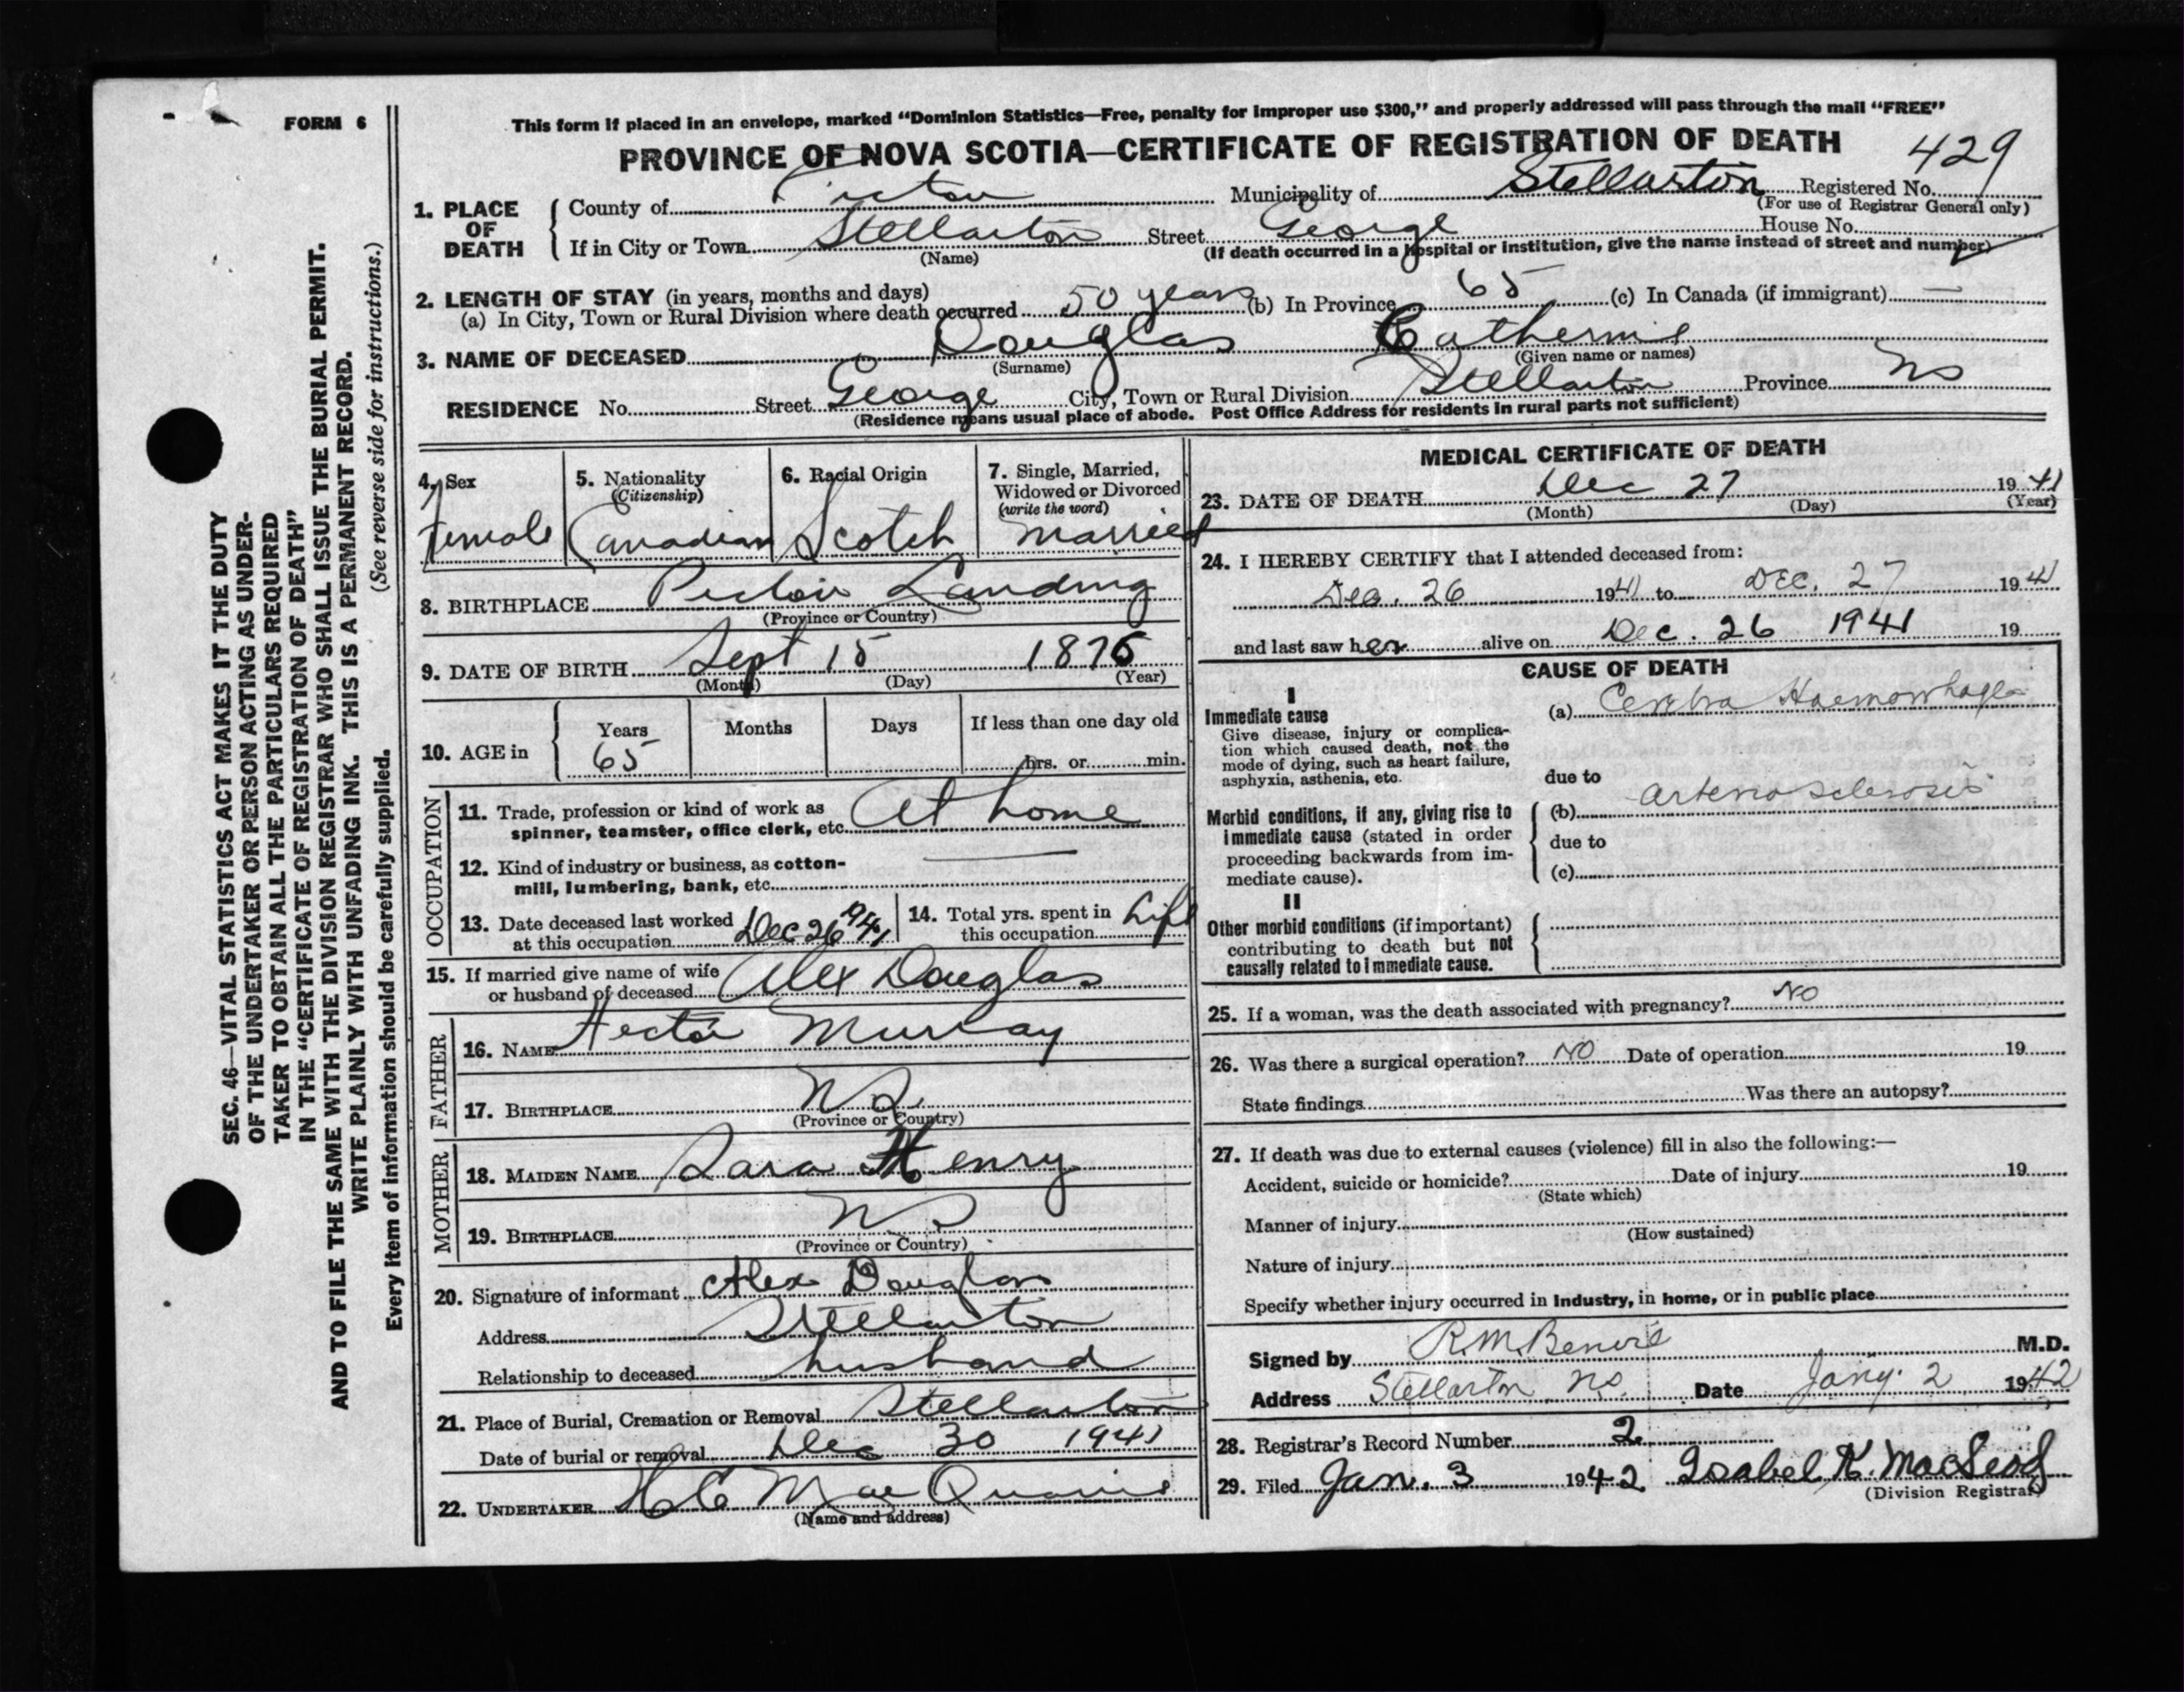 FORM 6
SEC. 46—VITAL STATISTICS ACT MAKES IT THE DUTY
OF THE UNDERTAKER OR PERSON ACTING AS UNDER-
TAKER TO OBTAIN ALL THE PARTICULARS REQUIRED
IN THE "CERTIFICATE OF REGISTRATION OF DEATH"
AND TO FILE THE SAME WITH THE DIVISION REGISTRAR WHO SHALL ISSUE THE BURIAL PERMIT.
WRITE PLAINLY WITH UNFADING INK. THIS IS A PERMANENT RECORD.
(See reverse side for instructions.)
Every item of information should be carefully supplied.
This form if placed in an envelope, marked "Dominion Statistics—Free, penalty for improper use $300," and properly addressed will pass through the mail "FREE"
PROVINCE OF NOVA SCOTIA—CERTIFICATE OF REGISTRATION OF DEATH
429
1. PLACE OF DEATH County of Pictou Municipality of Stellarton Registered No.
(For use of Registrar General only)
If in City or Town Stellarton Street George House No.
(Name) (If death occurred in a hospital or institution, give the name instead of street and number)
2. LENGTH OF STAY (in years, months and days)
(a) In City, Town or Rural Division where death occurred 50 years (b) In Province 65 (c) In Canada (if immigrant) —
3. NAME OF DECEASED Douglas Catherine
(Surname) (Given name or names)
RESIDENCE No. Street George City, Town or Rural Division Stellarton Province NS
(Residence means usual place of abode. Post Office Address for residents in rural parts not sufficient)
4. Sex
Female
5. Nationality
(Citizenship)
Canadian
6. Racial Origin
Scotch
7. Single, Married,
Widowed or Divorced
(write the word)
Married
8. BIRTHPLACE Pictou Landing
(Province or Country)
9. DATE OF BIRTH Sept 15 1876
(Month) (Day) (Year)
10. AGE in Years Months Days If less than one day old
65 hrs. or min.
OCCUPATION
11. Trade, profession or kind of work as
spinner, teamster, office clerk, etc. At home
12. Kind of industry or business, as cotton-
mill, lumbering, bank, etc. —
13. Date deceased last worked
at this occupation Dec 26 1941
14. Total yrs. spent in
this occupation Life
15. If married give name of wife
or husband of deceased Alex Douglas
FATHER
16. NAME Hector Murray
17. BIRTHPLACE NS
(Province or Country)
MOTHER
18. MAIDEN NAME Sara Henry
19. BIRTHPLACE NS
(Province or Country)
20. Signature of informant Alex Douglas
Address Stellarton
Relationship to deceased husband
21. Place of Burial, Cremation or Removal Stellarton
Date of burial or removal Dec 30 1941
22. UNDERTAKER
(Name and address)
MEDICAL CERTIFICATE OF DEATH
23. DATE OF DEATH Dec 27 1941
(Month) (Day) (Year)
24. I HEREBY CERTIFY that I attended deceased from:
Dec. 26 1941 to DEC. 27 1941
and last saw her alive on Dec. 26 1941 19
CAUSE OF DEATH
I
Immediate cause
Give disease, injury or complica-
tion which caused death, not the
mode of dying, such as heart failure,
asphyxia, asthenia, etc.
(a) Cerebra Haemorrhage
due to
Morbid conditions, if any, giving rise to
immediate cause (stated in order
proceeding backwards from im-
mediate cause).
(b) arterio sclerosis
due to
(c)
II
Other morbid conditions (if important)
contributing to death but not
causally related to immediate cause.
25. If a woman, was the death associated with pregnancy? NO
26. Was there a surgical operation? NO Date of operation 19
State findings Was there an autopsy?
27. If death was due to external causes (violence) fill in also the following:—
Accident, suicide or homicide? Date of injury 19
(State which)
Manner of injury
(How sustained)
Nature of injury
Specify whether injury occurred in industry, in home, or in public place
Signed by R.M. Benvie M.D.
Address Stellarton NS. Date Jany. 2 1942
28. Registrar's Record Number 2
29. Filed Jan. 3 1942 Isabel K. MacLeod
(Division Registrar)